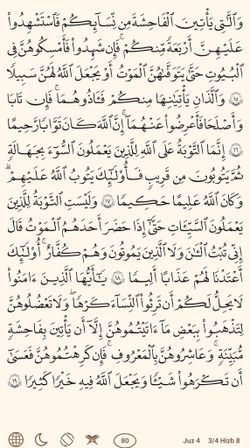 وَٱلَّٰتِى يَأْتِينَ ٱلْفَٰحِشَةَ مِن نِّسَآئِكُمْ فَٱسْتَشْهِدُوا۟
عَلَيْهِنَّ أَرْبَعَةً مِّنكُمْ ۖ فَإِن شَهِدُوا۟ فَأَمْسِكُوهُنَّ فِى
ٱلْبُيُوتِ حَتَّىٰ يَتَوَفَّىٰهُنَّ ٱلْمَوْتُ أَوْ يَجْعَلَ ٱللَّهُ لَهُنَّ سَبِيلًا
١٥ وَٱلَّذَانِ يَأْتِيَٰنِهَا مِنكُمْ فَـَٔاذُوهُمَا ۖ فَإِن تَابَا
وَأَصْلَحَا فَأَعْرِضُوا۟ عَنْهُمَآ ۗ إِنَّ ٱللَّهَ كَانَ تَوَّابًا رَّحِيمًا
١٦ إِنَّمَا ٱلتَّوْبَةُ عَلَى ٱللَّهِ لِلَّذِينَ يَعْمَلُونَ ٱلسُّوٓءَ بِجَهَٰلَةٍ
ثُمَّ يَتُوبُونَ مِن قَرِيبٍ فَأُو۟لَٰٓئِكَ يَتُوبُ ٱللَّهُ عَلَيْهِمْ ۗ
وَكَانَ ٱللَّهُ عَلِيمًا حَكِيمًا ١٧ وَلَيْسَتِ ٱلتَّوْبَةُ لِلَّذِينَ
يَعْمَلُونَ ٱلسَّيِّـَٔاتِ حَتَّىٰٓ إِذَا حَضَرَ أَحَدَهُمُ ٱلْمَوْتُ قَالَ
إِنِّى تُبْتُ ٱلْـَٰٔنَ وَلَا ٱلَّذِينَ يَمُوتُونَ وَهُمْ كُفَّارٌ ۚ أُو۟لَٰٓئِكَ
أَعْتَدْنَا لَهُمْ عَذَابًا أَلِيمًا ١٨ يَٰٓأَيُّهَا ٱلَّذِينَ ءَامَنُوا۟
لَا يَحِلُّ لَكُمْ أَن تَرِثُوا۟ ٱلنِّسَآءَ كَرْهًا ۖ وَلَا تَعْضُلُوهُنَّ
لِتَذْهَبُوا۟ بِبَعْضِ مَآ ءَاتَيْتُمُوهُنَّ إِلَّآ أَن يَأْتِينَ بِفَٰحِشَةٍ
مُّبَيِّنَةٍ ۚ وَعَاشِرُوهُنَّ بِٱلْمَعْرُوفِ ۚ فَإِن كَرِهْتُمُوهُنَّ فَعَسَىٰٓ
أَن تَكْرَهُوا۟ شَيْـًٔا وَيَجْعَلَ ٱللَّهُ فِيهِ خَيْرًا كَثِيرًا ١٩
80 Juz 4 3/4 Hizb 8